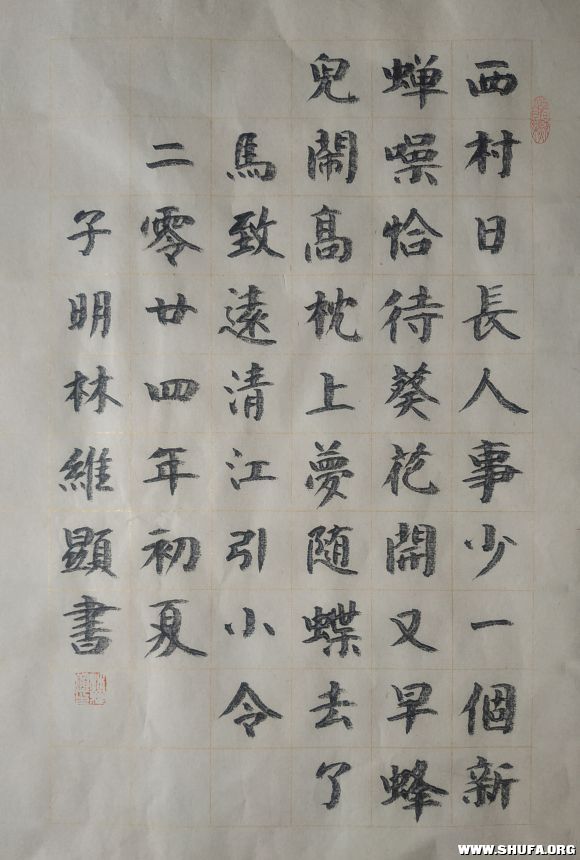 西村日長人事少一個新
蝉噪恰待葵花開又早蜂
兒鬧高枕上夢随蝶去了
馬致遠清江引小令
二零廿四年初夏
子明林維顯書
WWW.SHUFA.ORG